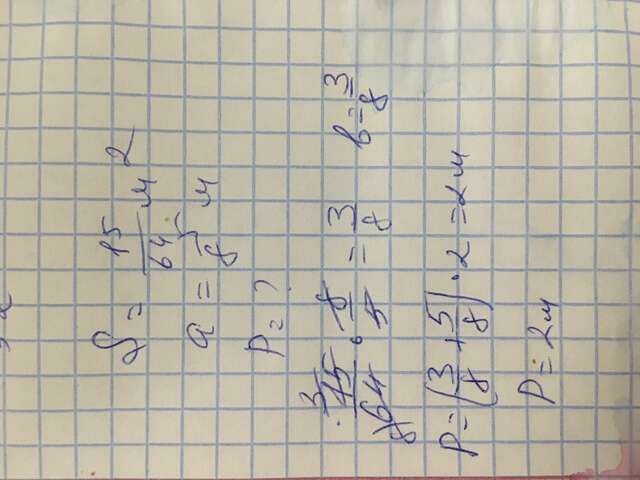 S = 15/64 м²
a = 5/8 м
P = ?
15/64 · 8/5 = 3/8 b = 3/8
P = (3/8 + 5/8) · 2 = 2м
P = 2м